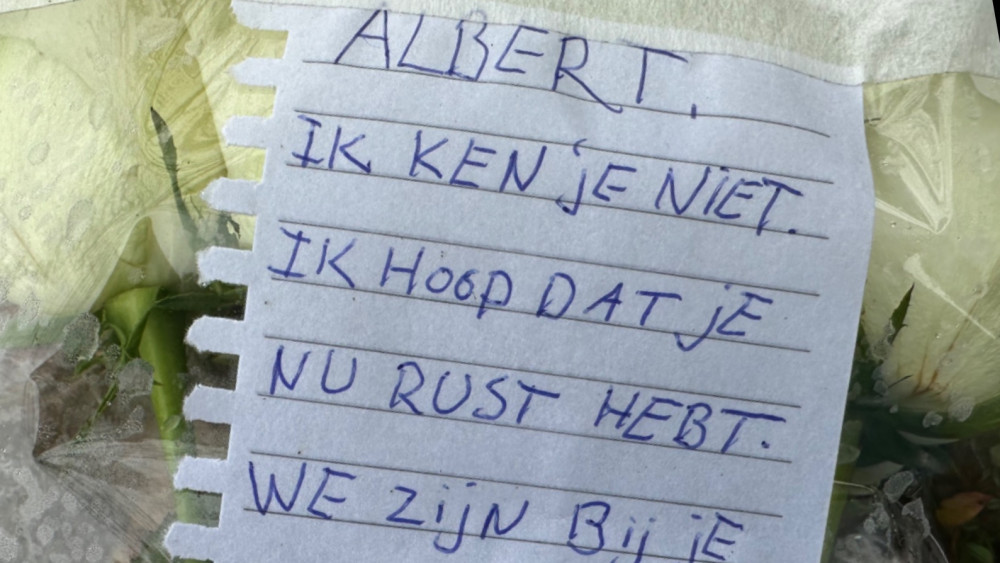 ALBERT.
IK KEN jE NiET.
IK HOOP DAT jE
NU RUST HEBT.
WE ZijN Bij jE